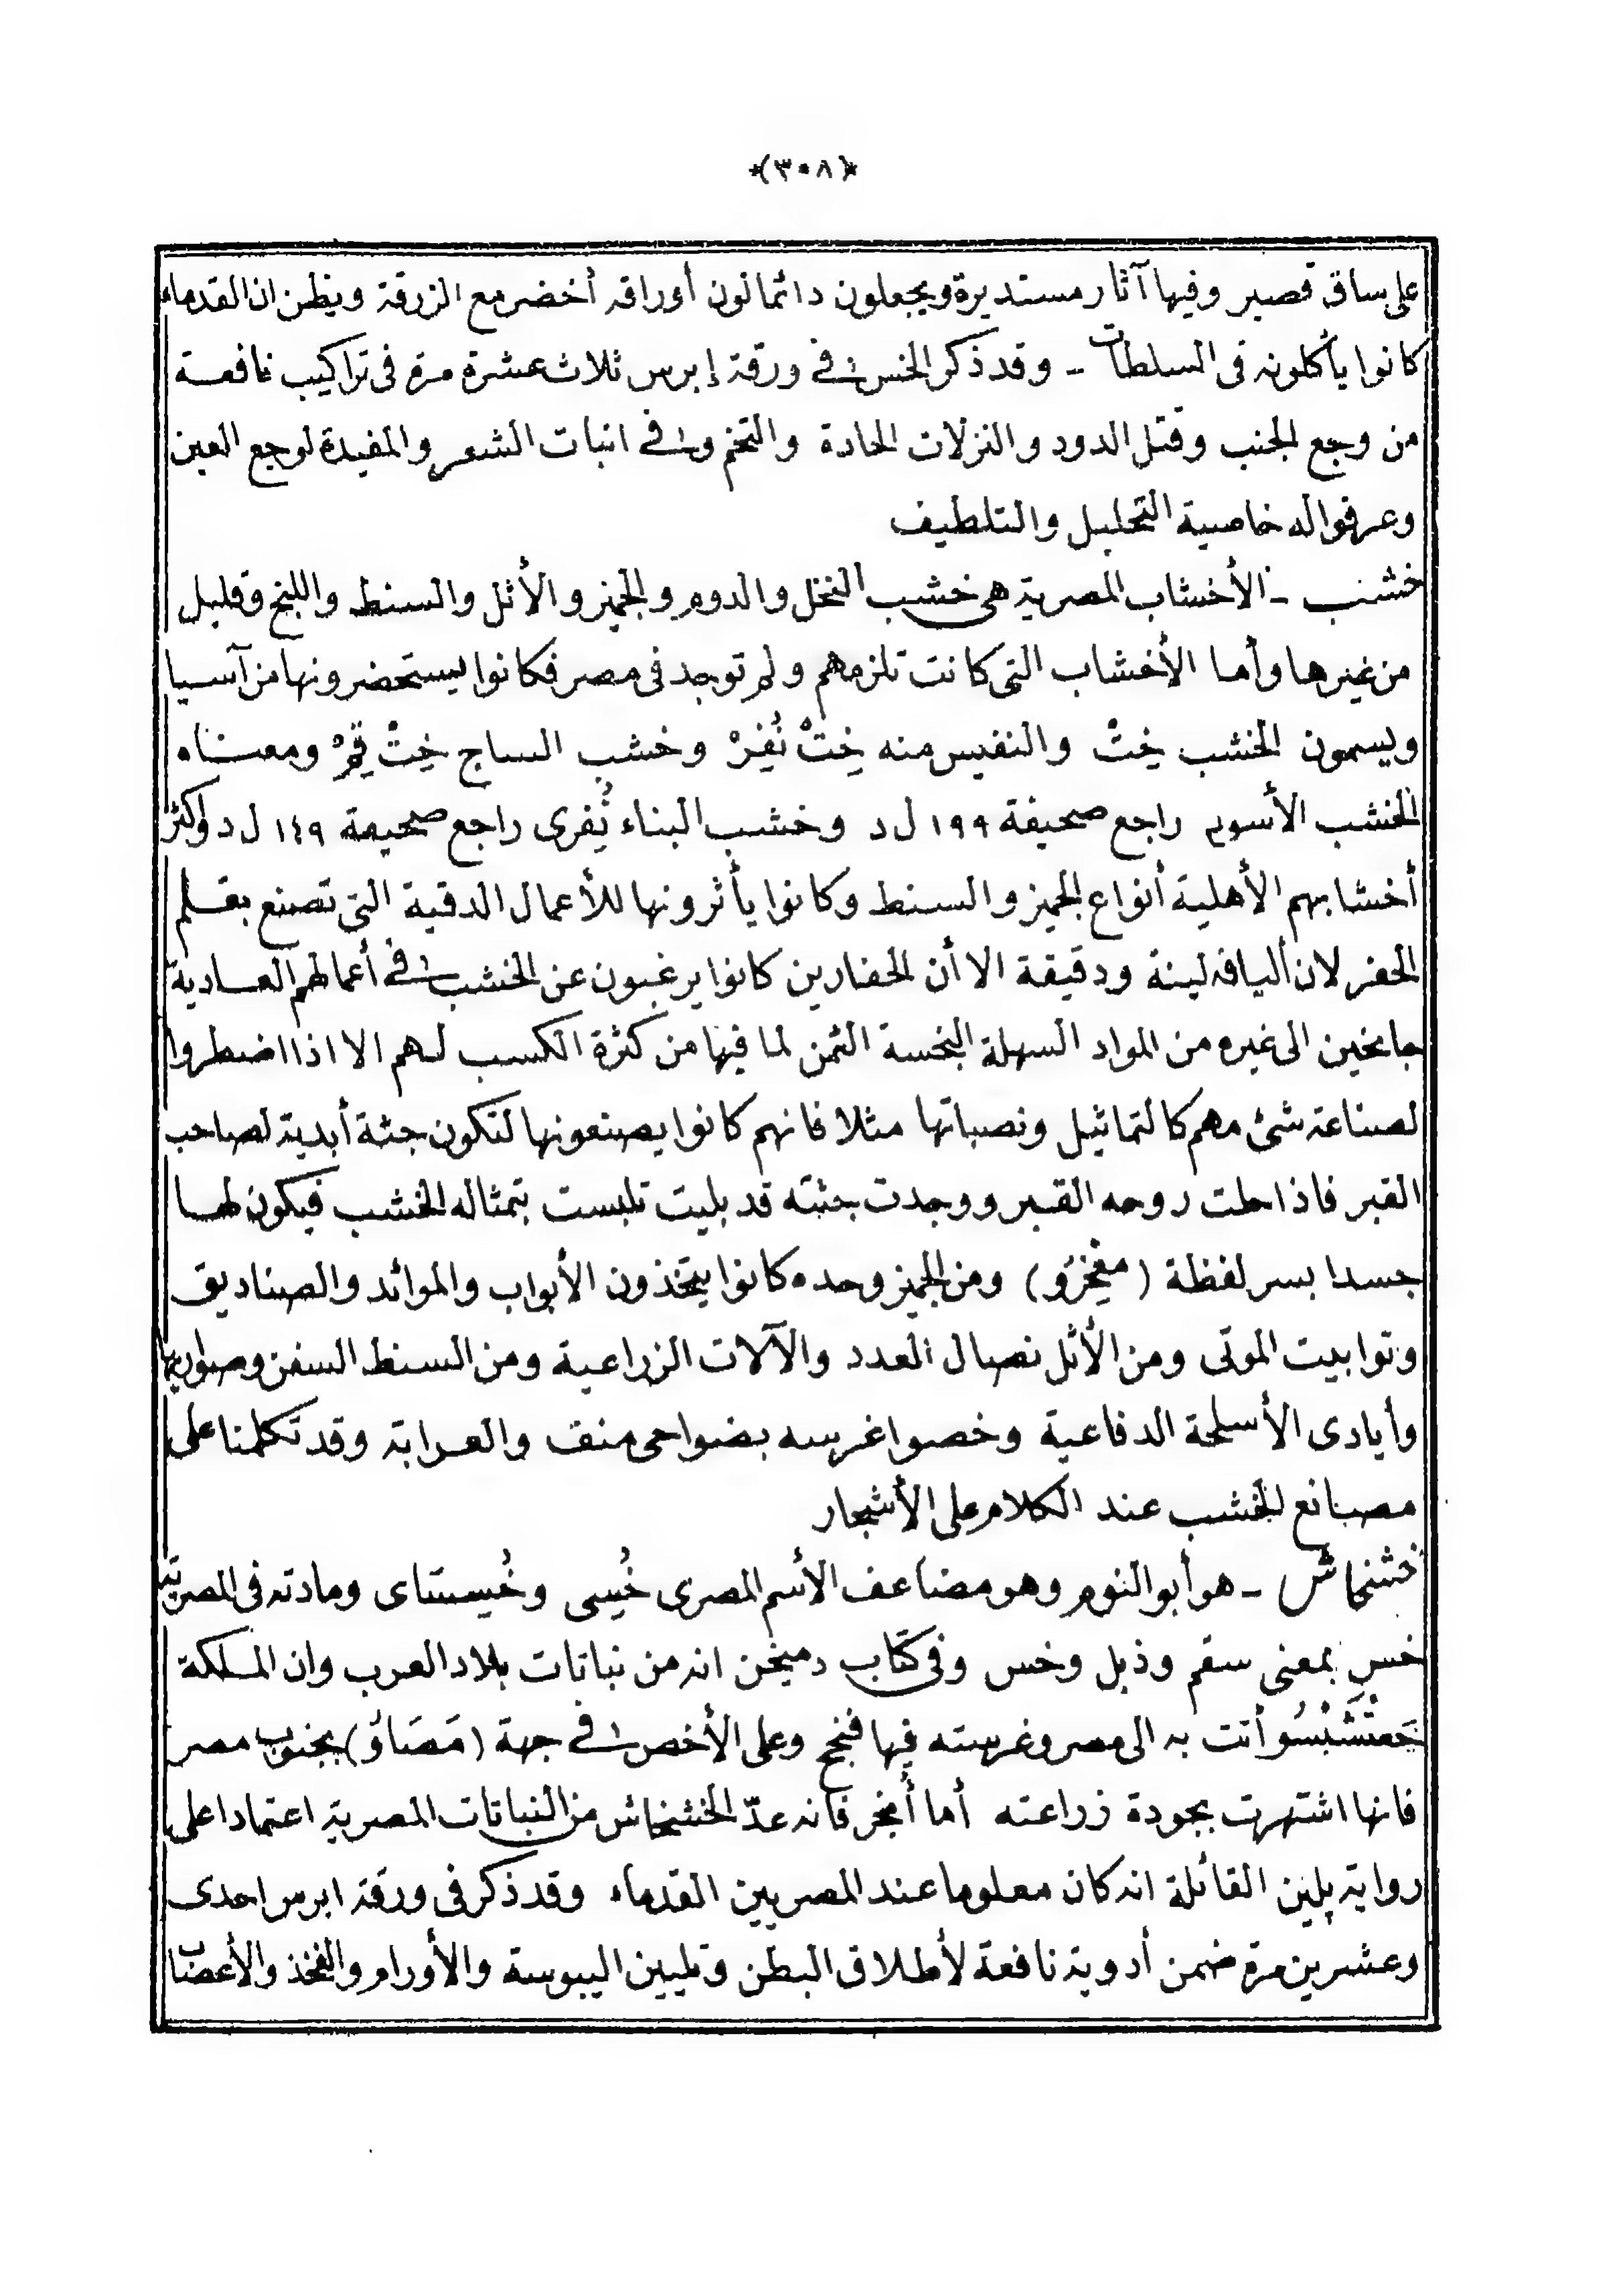 *(٣٠٨)*
على ساق قصير وفيها آثار مستديرة ويجعلون دائما لون أوراقه أخضر مع الزرقة ويظن ان القدماء
كانوا يأكلونه فى السلطات - وقد ذكر الخس فى ورقة إبرس ثلاث عشرة مرة فى تراكيب نافعة
من وجع الجنب وقتل الدود والنزلات الحادة والتخم وفى انبات الشعر والمفيدة لوجع العين
وعرفوا له خاصية التحليل والتلطيف
خشب - الأخشاب المصرية هى خشب النخل والدوم والجميز والأثل والسنط واللبخ وقليل
من غيرها وأما الأخشاب التى كانت تلزمهم ولم توجد فى مصر فكانوا يستحضرونها من آسيا
ويسمون الخشب خِتْ والنفيس منه خِتْ نُفِرْ وخشب الساج خِتْ قِمْ ومعناه
الخشب الأسود راجع صحيفة ١٩٩ ل د وخشب البناء نُفِرى راجع صحيفة ١٤٩ ل د وأكثر
أخشابهم الأهلية أنواع الجميز والسنط وكانوا يأثرونها للأعمال الدقية التى تصنع بقلم
الحفر لان أليافه لينة ودقيقة الا أن الحفارين كانوا يرغبون عن الخشب فى أعمالهم العادية
جانحين الى غيره من المواد السهلة البخسة الثمن لما فيها من كثرة الكسب لهم الا اذا اضطروا
لصناعة شئ مهم كالتماثيل ونصباتها مثلا فانهم كانوا يصنعونها لتكون جثة أبدية لصاحب
القبر فاذا حلت روحه القبر ووجدت جثته قد بليت تلبست بتمثاله الخشب فيكون لها
جسدا بسر لفظة ( مفخرو ) ومن الجميز وحده كانوا يتخذون الأبواب والموائد والصناديق
وتوابيت الموتى ومن الأثل نصال العدد والآلات الزراعية ومن السنط السفن وصواريها
وأيادى الأسلحة الدفاعية وخصوا غرسه بضواحى منف والعرابة وقد تكلمنا على
مصانع الخشب عند الكلام على الأشجار
خشخاش - هو أبو النوم وهو مضاعف الأسم المصرى خُيسى وخُيستاى ومادته فى المصرية
خس بمعنى سقم وذبل وخس وفى كتاب دميخن انه من نباتات بلاد العرب وان الملكة
حعتشبسو أتت به الى مصر وغرسته فيها فنجح وعلى الأخص فى جهة (مَصَاوُ) بجنوب مصر
فانها اشتهرت بجودة زراعته أما أنجر فانه عدّ الخشخاش من النباتات المصرية اعتمادا على
رواية پلين القائلة انه كان معلوما عند المصريين القدماء وقد ذكر فى ورقة ابرس احدى
وعشرين مرة ضمن أدوية نافعة لأطلاق البطن وتليين اليبوسة والأورام والفخذ والأعصاب